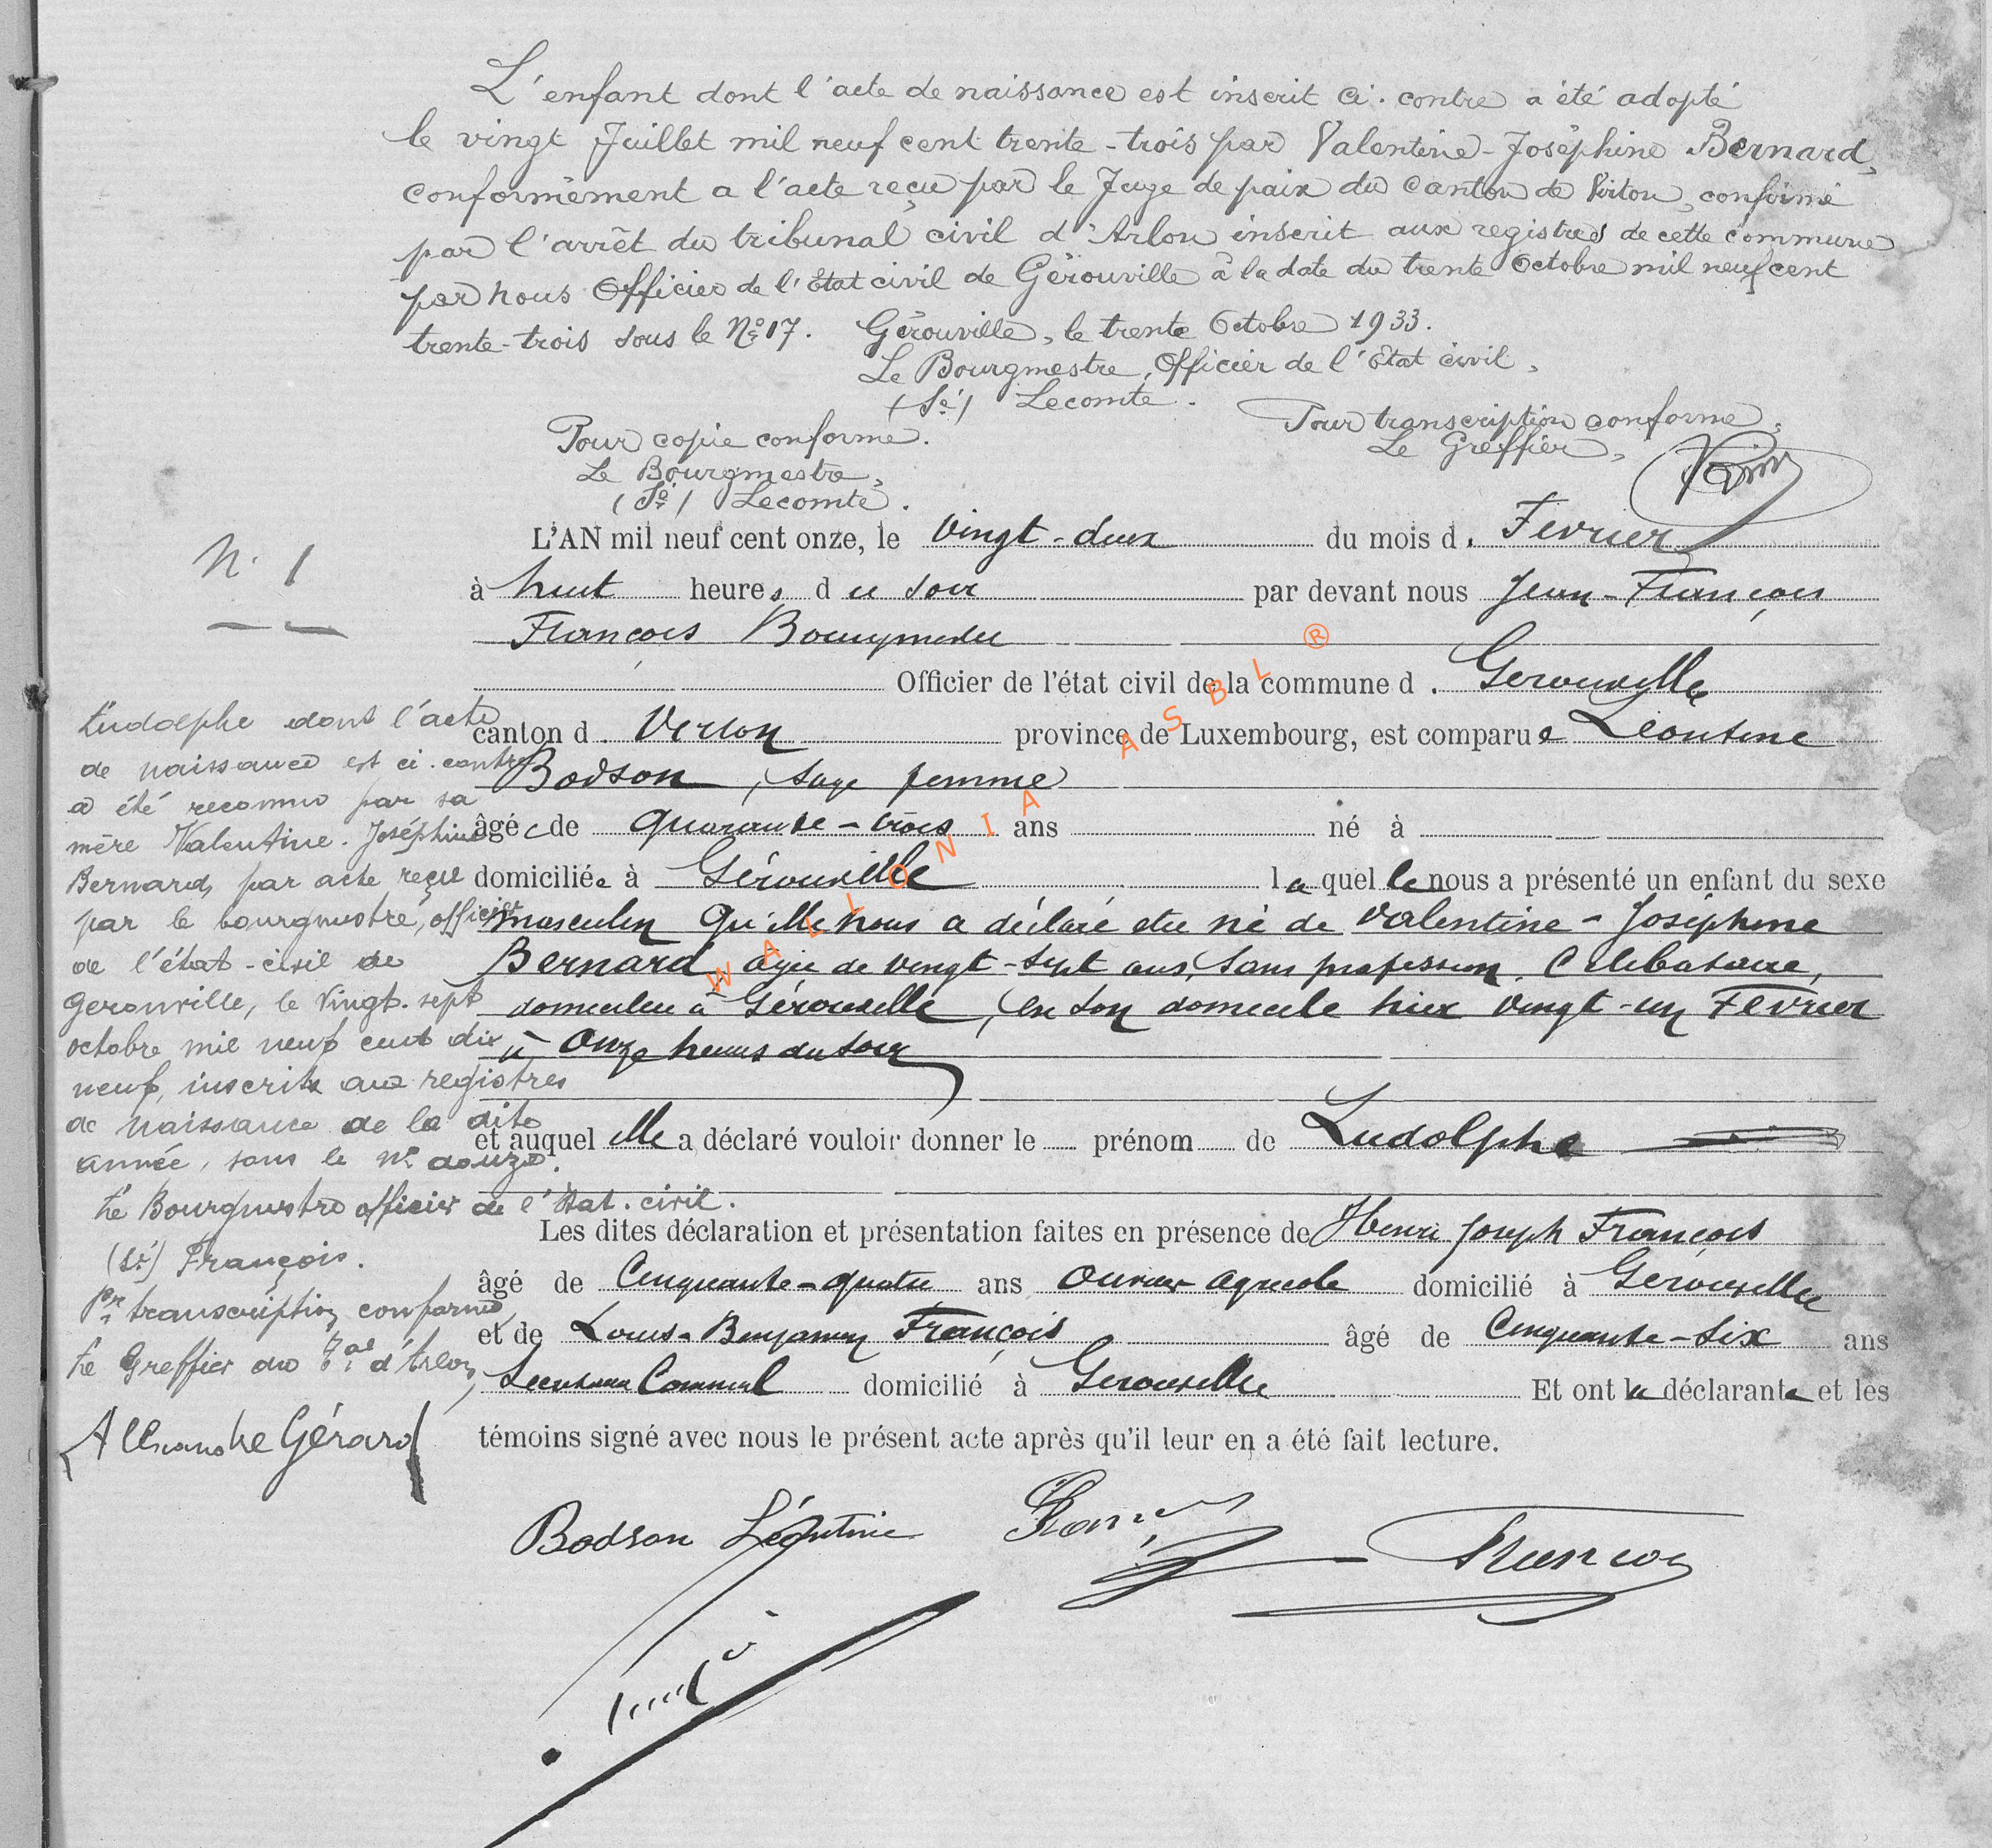 L'enfant dont l'acte de naissance est inscrit ci-contre a été adopté
le vingt Juillet mil neuf cent trente-trois par Valentine-Joséphine Bernard,
conformément a l'acte reçu par le Juge de paix du Canton de Virton, confirmé
par l'arrêt du tribunal civil d'Arlon inscrit aux registres de cette commune
par nous Officier de l'Etat civil de Gérouville à la date du trente Octobre mil neuf cent
trente-trois sous le No 17. Gérouville, le trente Octobre 1933.
Le Bourgmestre, Officier de l'Etat civil,
(Sé) Lecomte.
Pour copie conforme.
Le Bourgmestre,
(Sé) Lecomte.
Pour transcription conforme,
Le Greffier,
N. 1
L'AN mil neuf cent onze, le vingt-deux du mois d. Fevrier
à huit heures du soir par devant nous Jean-François
François Bourgmestre
Officier de l'état civil de la commune d. Gerouville
canton d. Virton province de Luxembourg, est comparue Léontine
Bodson, sage femme
âgée de quarante-trois ans né à
domiciliée à Gérouville laquelle nous a présenté un enfant du sexe
masculin qu'elle nous a déclaré etre né de Valentine-Joséphine
Bernard, agée de vingt-sept ans, sans profession, Celibataire,
domiciliee à Gérouville, en son domicile hier vingt-un Fevrier
à onze heures du soir
et auquel elle a déclaré vouloir donner le prénom de Ludolphe
Les dites déclaration et présentation faites en présence de Henri Joseph François
âgé de Cinquante-quatre ans ouvrier agricole domicilié à Gerouville
et de Louis-Benjamin François âgé de Cinquante-six ans
Secretaire Communal domicilié à Gerouville Et ont la déclarante et les
témoins signé avec nous le présent acte après qu'il leur en a été fait lecture.
Ludolphe dont l'acte
de naissance est ci-contre
a été reconnu par sa
mère Valentine-Joséphine
Bernard, par acte reçu
par le bourgmestre, officier
de l'état-civil de
Gerouville, le vingt-sept
octobre mil neuf cent dix
neuf, inscrit aux registres
de naissance de la dite
année, sous le No douze.
Le Bourgmestre officier de l'Etat-civil.
(Sé) François.
Pr transcription conforme
Le Greffier du Tal d'Arlon,
Gérard
Bodson Léontine
François
WALLONIA ASBL ®